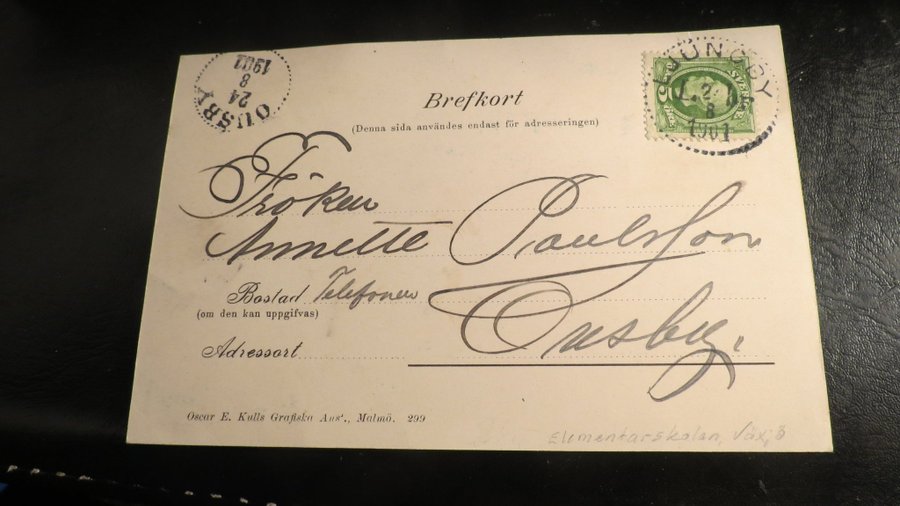 OUSBY
24
8
1901
Brefkort
(Denna sida användes endast för adresseringen)
LJUNGBY
8
1901
Fröken
Annette Paulsson
Bostad Telefonen
(om den kan uppgifvas)
Ousby.
Adressort
Oscar E. Kulls Grafiska Anst., Malmö. 299
Elementarskolan, Växjö